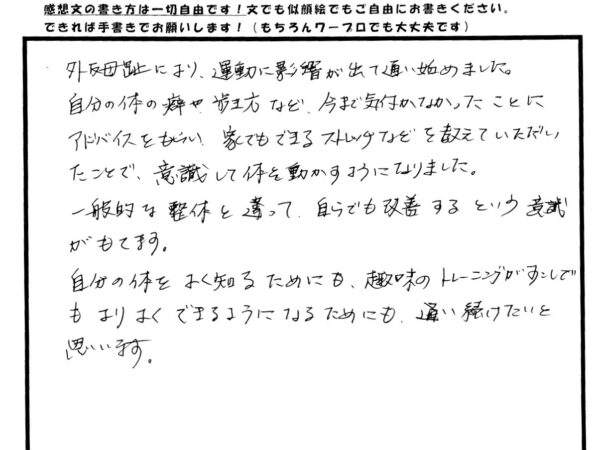 感想文の書き方は一切自由です！文でも似顔絵でもご自由にお書きください。
できれば手書きでお願いします！（もちろんワープロでも大丈夫です）
外反母趾により、運動に影響が出て通い始めました。
自分の体の癖や歩き方など、今まで気付かなかったことに
アドバイスをもらい、家でもできるストレッチなどを教えていただい
たことで、意識して体を動かすようになりました。
一般的な整体と違って、自らでも改善するという意識
がもてます。
自分の体をよく知るためにも、趣味のトレーニングがすこしで
もよりよくできるようになるためにも、通い続けたいと
思います。